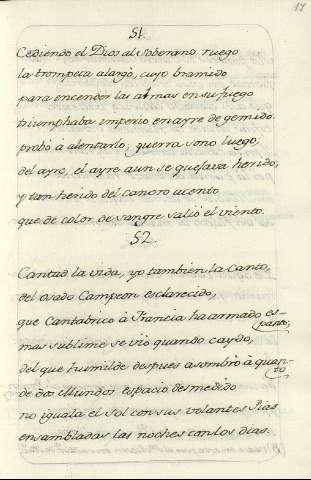 17
51
Cediendo el Dios al Soberano ruego
la trompeta alargò, cuyo bramido
para encender las almas en su fuego
triumphaba imperio en ayre de gemido
probò à alentarlo; guerra sono luego,
del ayro, el ayre aun se quejava herido,
y tan herido del canoro acento
que de color de sangre saliò el viento.
52.
Cantad la vida, yo tambien la Canto,
del osado Campeon esclarecido,
que Cantabrico à Francia ha armado es-
panto;
mas sublime se viò quando caydo,
del que humilde despues asombrò à quan-
to
de dos Mundos espacio desmedido
no iguala el Sol con sus volantes
ensambladas las noches con los dias.